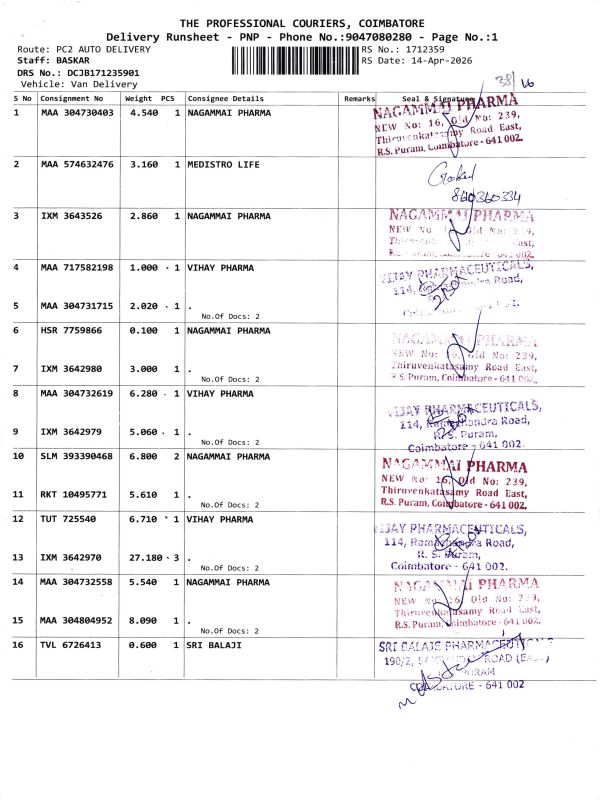 THE PROFESSIONAL COURIERS, COIMBATORE
Delivery Runsheet - PNP - Phone No.:9047080280 - Page No.:1
Route: PC2 AUTO DELIVERY RS No.: 1712359
Staff: BASKAR RS Date: 14-Apr-2026
DRS No.: DCJB171235901
Vehicle: Van Delivery
38/16
S No Consignment No Weight PCS Consignee Details Remarks Seal & Signature
1 MAA 304730403 4.540 1 NAGAMMAI PHARMA
NAGAMMAI PHARMA
NEW No: 16, Old No: 239,
Thiruvenkatasamy Road East,
R.S. Puram, Coimbatore - 641 002.
2 MAA 574632476 3.160 1 MEDISTRO LIFE
860360334
3 IXM 3643526 2.860 1 NAGAMMAI PHARMA
NAGAMMAI PHARMA
NEW No Old No: 239,
East,
641 002.
4 MAA 717582198 1.000 1 VIHAY PHARMA
VIJAY PHARMACEUTICALS,
114, Road,
5 MAA 304731715 2.020 1 .
No.Of Docs: 2
6 HSR 7759866 0.100 1 NAGAMMAI PHARMA
NAGAMMAI PHARMA
NEW No: 16, Old No: 239,
Thiruvenkatasamy Road East,
R.S. Puram, Coimbatore - 641 002.
7 IXM 3642980 3.000 1 .
No.Of Docs: 2
8 MAA 304732619 6.280 1 VIHAY PHARMA
VIJAY PHARMACEUTICALS,
114, Ramachandra Road,
R. S. Puram,
Coimbatore - 641 002.
9 IXM 3642979 5.060 1 .
No.Of Docs: 2
10 SLM 393390468 6.800 2 NAGAMMAI PHARMA
NAGAMMAI PHARMA
NEW No: 16, Old No: 239,
Thiruvenkatasamy Road East,
R.S. Puram, Coimbatore - 641 002.
11 RKT 10495771 5.610 1 .
No.Of Docs: 2
12 TUT 725540 6.710 1 VIHAY PHARMA
VIJAY PHARMACEUTICALS,
114, Ramachandra Road,
R. S. Puram,
Coimbatore - 641 002.
13 IXM 3642970 27.180 3 .
No.Of Docs: 2
14 MAA 304732558 5.540 1 NAGAMMAI PHARMA
NAGAMMAI PHARMA
NEW No 16, Old No: 239,
Thiruvenkatasamy Road East,
R.S. Puram, Coimbatore - 641 002.
15 MAA 304804952 8.090 1 .
No.Of Docs: 2
16 TVL 6726413 0.600 1 SRI BALAJI
SRI BALAJI PHARMACEUTICALS
190/2, ROAD (EAST)
PURAM
COIMBATORE - 641 002